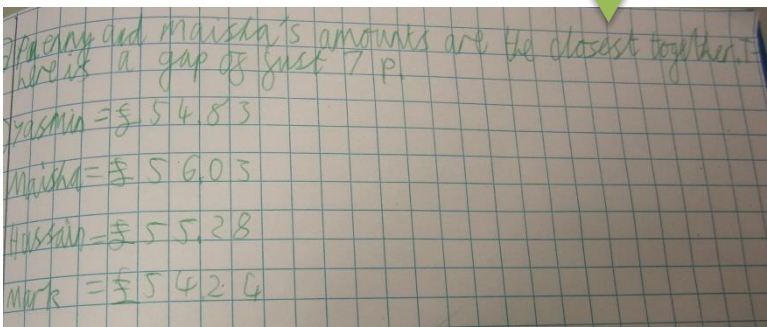 2) Penny and maisha's amounts are the closest together. T
here is a gap of just 7 p.
Yasmin = £54.83
Maisha = £56.03
Hussain = £55.28
Mark = £54 2.4